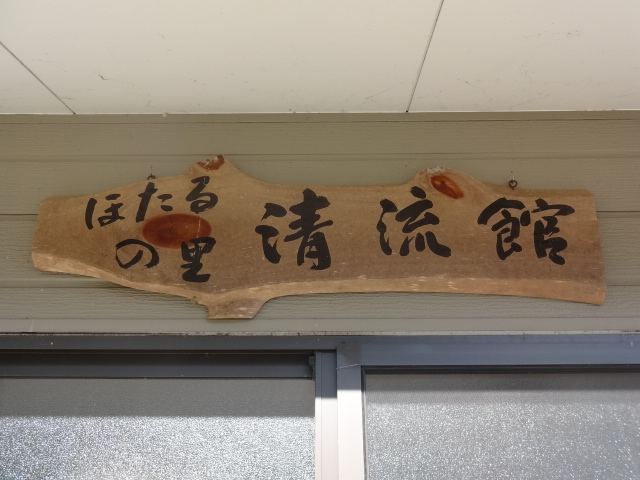 ほたる
の里
清流館